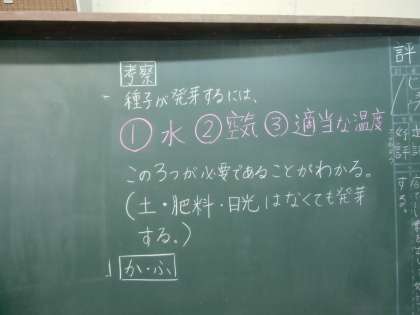 考察
種子が発芽するには、
①水 ②空気 ③適当な温度
この3つが必要であることがわかる。
(土・肥料・日光はなくても発芽
する。)
か・ふ
評